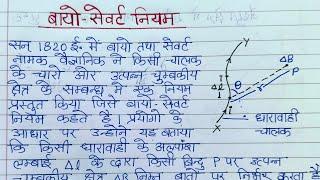 बायो-सेवर्ट नियम
सन् 1820 ई. में बायो तथा सेवर्ट
नामक वैज्ञानिक ने किसी चालक
के चारो ओर उत्पन्न चुम्बकीय
क्षेत्र के सम्बन्ध में एक नियम
प्रस्तुत किया जिसे बायो-सेवर्ट
नियम कहते हैं। प्रयोगों के
आधार पर उन्होंने यह बताया
कि किसी धारावाही के अल्पांश
लम्बाई Δl के द्वारा किसी बिन्दु P पर उत्पन्न
चुम्बकीय क्षेत्र ΔB निम्न बातों पर निर्भर करता है
Y
ΔB
P
θ
r
X
धारावाही
चालक